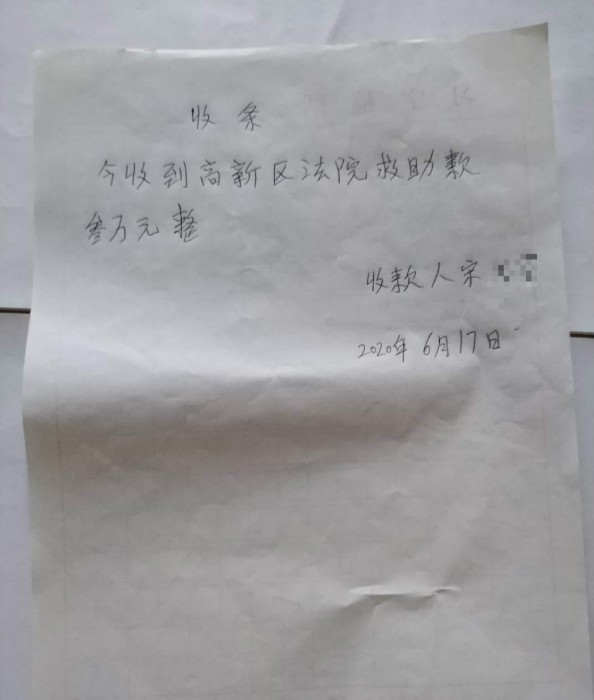 收条
今收到高新区法院救助款
叁万元整
收款人宋
2020年6月17日